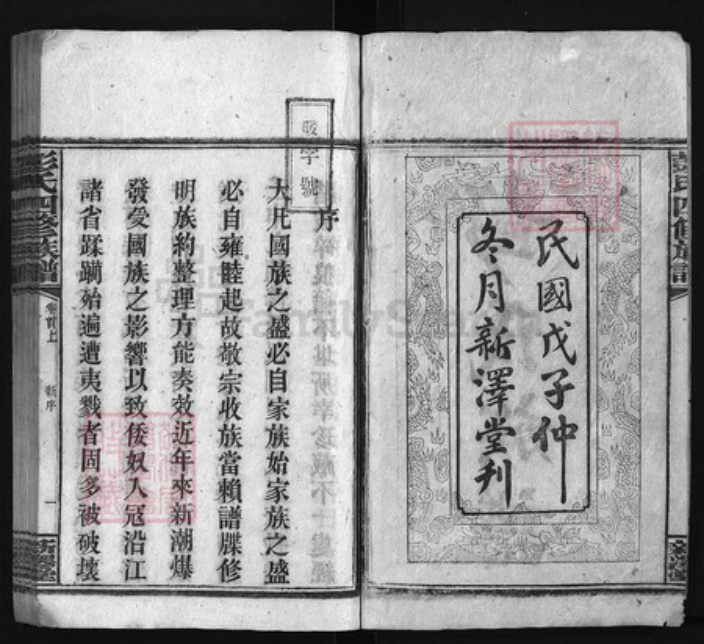 彭氏四修族譜
民國戊子仲
冬月新澤堂刋
字號
序
大凡國族之盛必自家族始家族之盛
必自雍睦起故敬宗收族當賴譜牒修
明族約整理方能奏效近年來新潮爆
發受國族之影響以致倭奴入寇沿江
諸省蹂躪殆遍遭夷戮者固多被破壞
彭氏四修族譜
卷首上
新序
一
新澤堂
FamilySearch